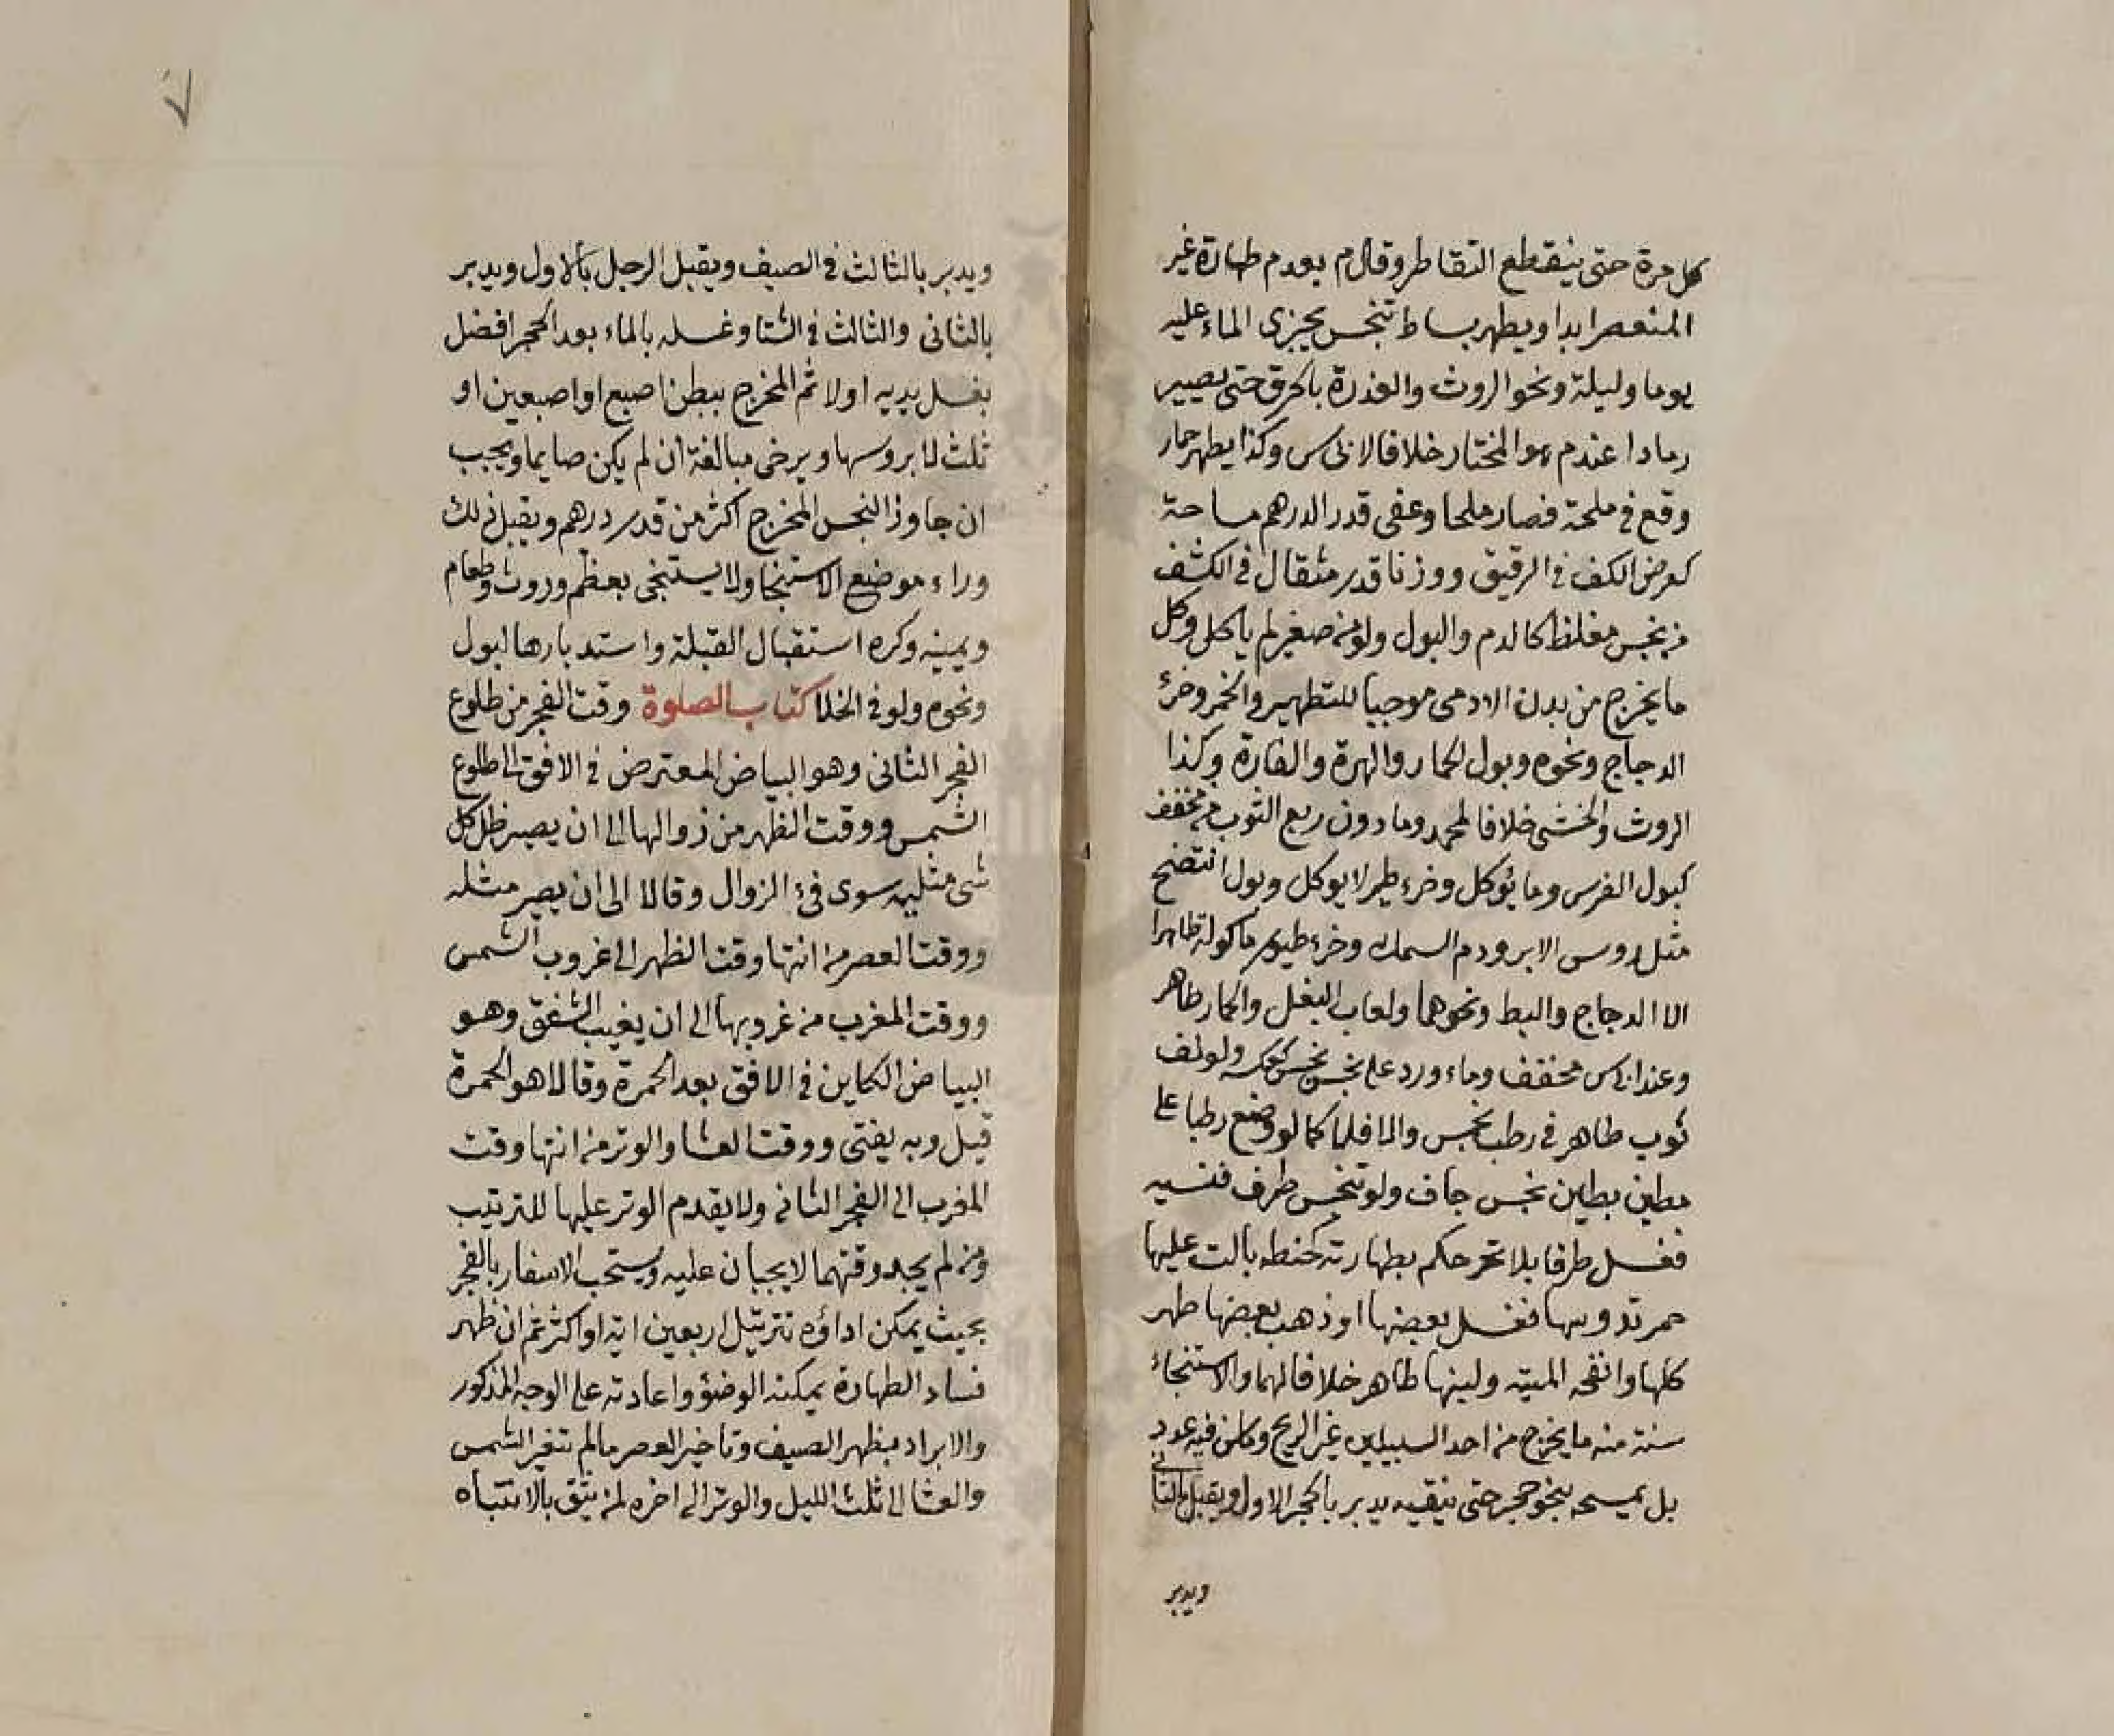 كل مرة حتى ينقطع التقاطر وقال م بعدم طهارة غير
المنعصر ابدا ويطهر بساط تنجس بجرى الماء عليه
يوما وليلة ونحو الروث والعذرة بالحرق حتى يصير
رمادا عند م هو المختار خلافا لابى س وكذا يطهر حمار
وقع في ملحة فصار ملحا وعفى قدر الدرهم مساحة
كعرض الكف في الرقيق ووزنا قدر مثقال في الكثف
من نجس مغلظ كالدم والبول ولو من صغير لم ياكل وكل
ما يخرج من بدن الادمى موجبا للتطهير والخمر وخرء
الدجاج ونحوه وبول الحمار والهرة والفارة وكذا
الروث والخثى خلافا لمحمد وما دون ربع الثوب من مخفف
كبول الفرس وما يؤكل وخرء طير لا يوكل وبول انتضح
مثل روس الابر ودم السمك وخرء طيور ماكولة طاهرا
الا الدجاج والبط ونحوهما ولعاب البغل والحمار طاهر
وعند ابى س مخفف وماء ورد على نجس نجس كعكسه ولو لف
ثوب طاهر في رطب نجس والا فلا كما لو وضع رطبا على
مطين بطين نجس جاف ولو تنجس طرف فنسيه
فغسل طرفا بلا تحر حكم بطهارته كحنطه بالت عليها
حمر تدوسها فغسل بعضها او ذهب بعضها طهر
كلها وانفحه الميته ولبنها طاهر خلافا لهما والاستنجاء
سنة منه ما يخرج من احد السبيلين غير الريح وما سن فيه عدد
بل يمسحه بنحو حجر حتى ينقيه يدبر بالحجر الاول ويقبل بالثانى
ويدبر
ويدبر بالثالث في الصيف ويقبل الرجل بالاول ويدبر
بالثانى والثالث في الشتا وغسله بالماء بعد الحجر افضل
يغسل يديه اولا ثم المخرج ببطن اصبع او اصبعين او
ثلث لا بروسها ويرخى مبالغة ان لم يكن صايما ويجب
ان جاوز النجس المخرج اكثر من قدر درهم ويقبل ذلك
وراء موضع الاستنجا ولا يستنجى بعظم وروث وطعام
ويمينه وكره استقبال القبلة واستدبارها لبول
ونحوه ولو في الخلا كتاب الصلوة وقت الفجر من طلوع
الفجر الثانى وهو البياض المعترض في الافق الى طلوع
الشمس ووقت الظهر من زوالها الى ان يصير ظل كل
شى مثليه سوى فىء الزوال وقالا الى ان يصير مثله
ووقت العصر من انتها وقت الظهر الى غروب الشمس
ووقت المغرب من غروبها الى ان يغيب الشفق وهو
البياض الكاين في الافق بعد الحمرة وقالا هو الحمرة
قيل وبه يفتى ووقت العشا والوتر من انتها وقت
المغرب الى الفجر الثانى ولا يقدم الوتر عليها للترتيب
ومن لم يجد وقتهما لا يجبان عليه ويستحب الاسفار بالفجر
بحيث يمكن اداؤه بترتيل اربعين اية او اكثر ثم ان ظهر
فساد الطهارة يمكنه الوضؤ واعادته على الوجه المذكور
والابراد بظهر الصيف وتاخير العصر مالم تتغير الشمس
والعشا الى ثلث الليل والوتر الى اخره لمن يثق بالانتباه